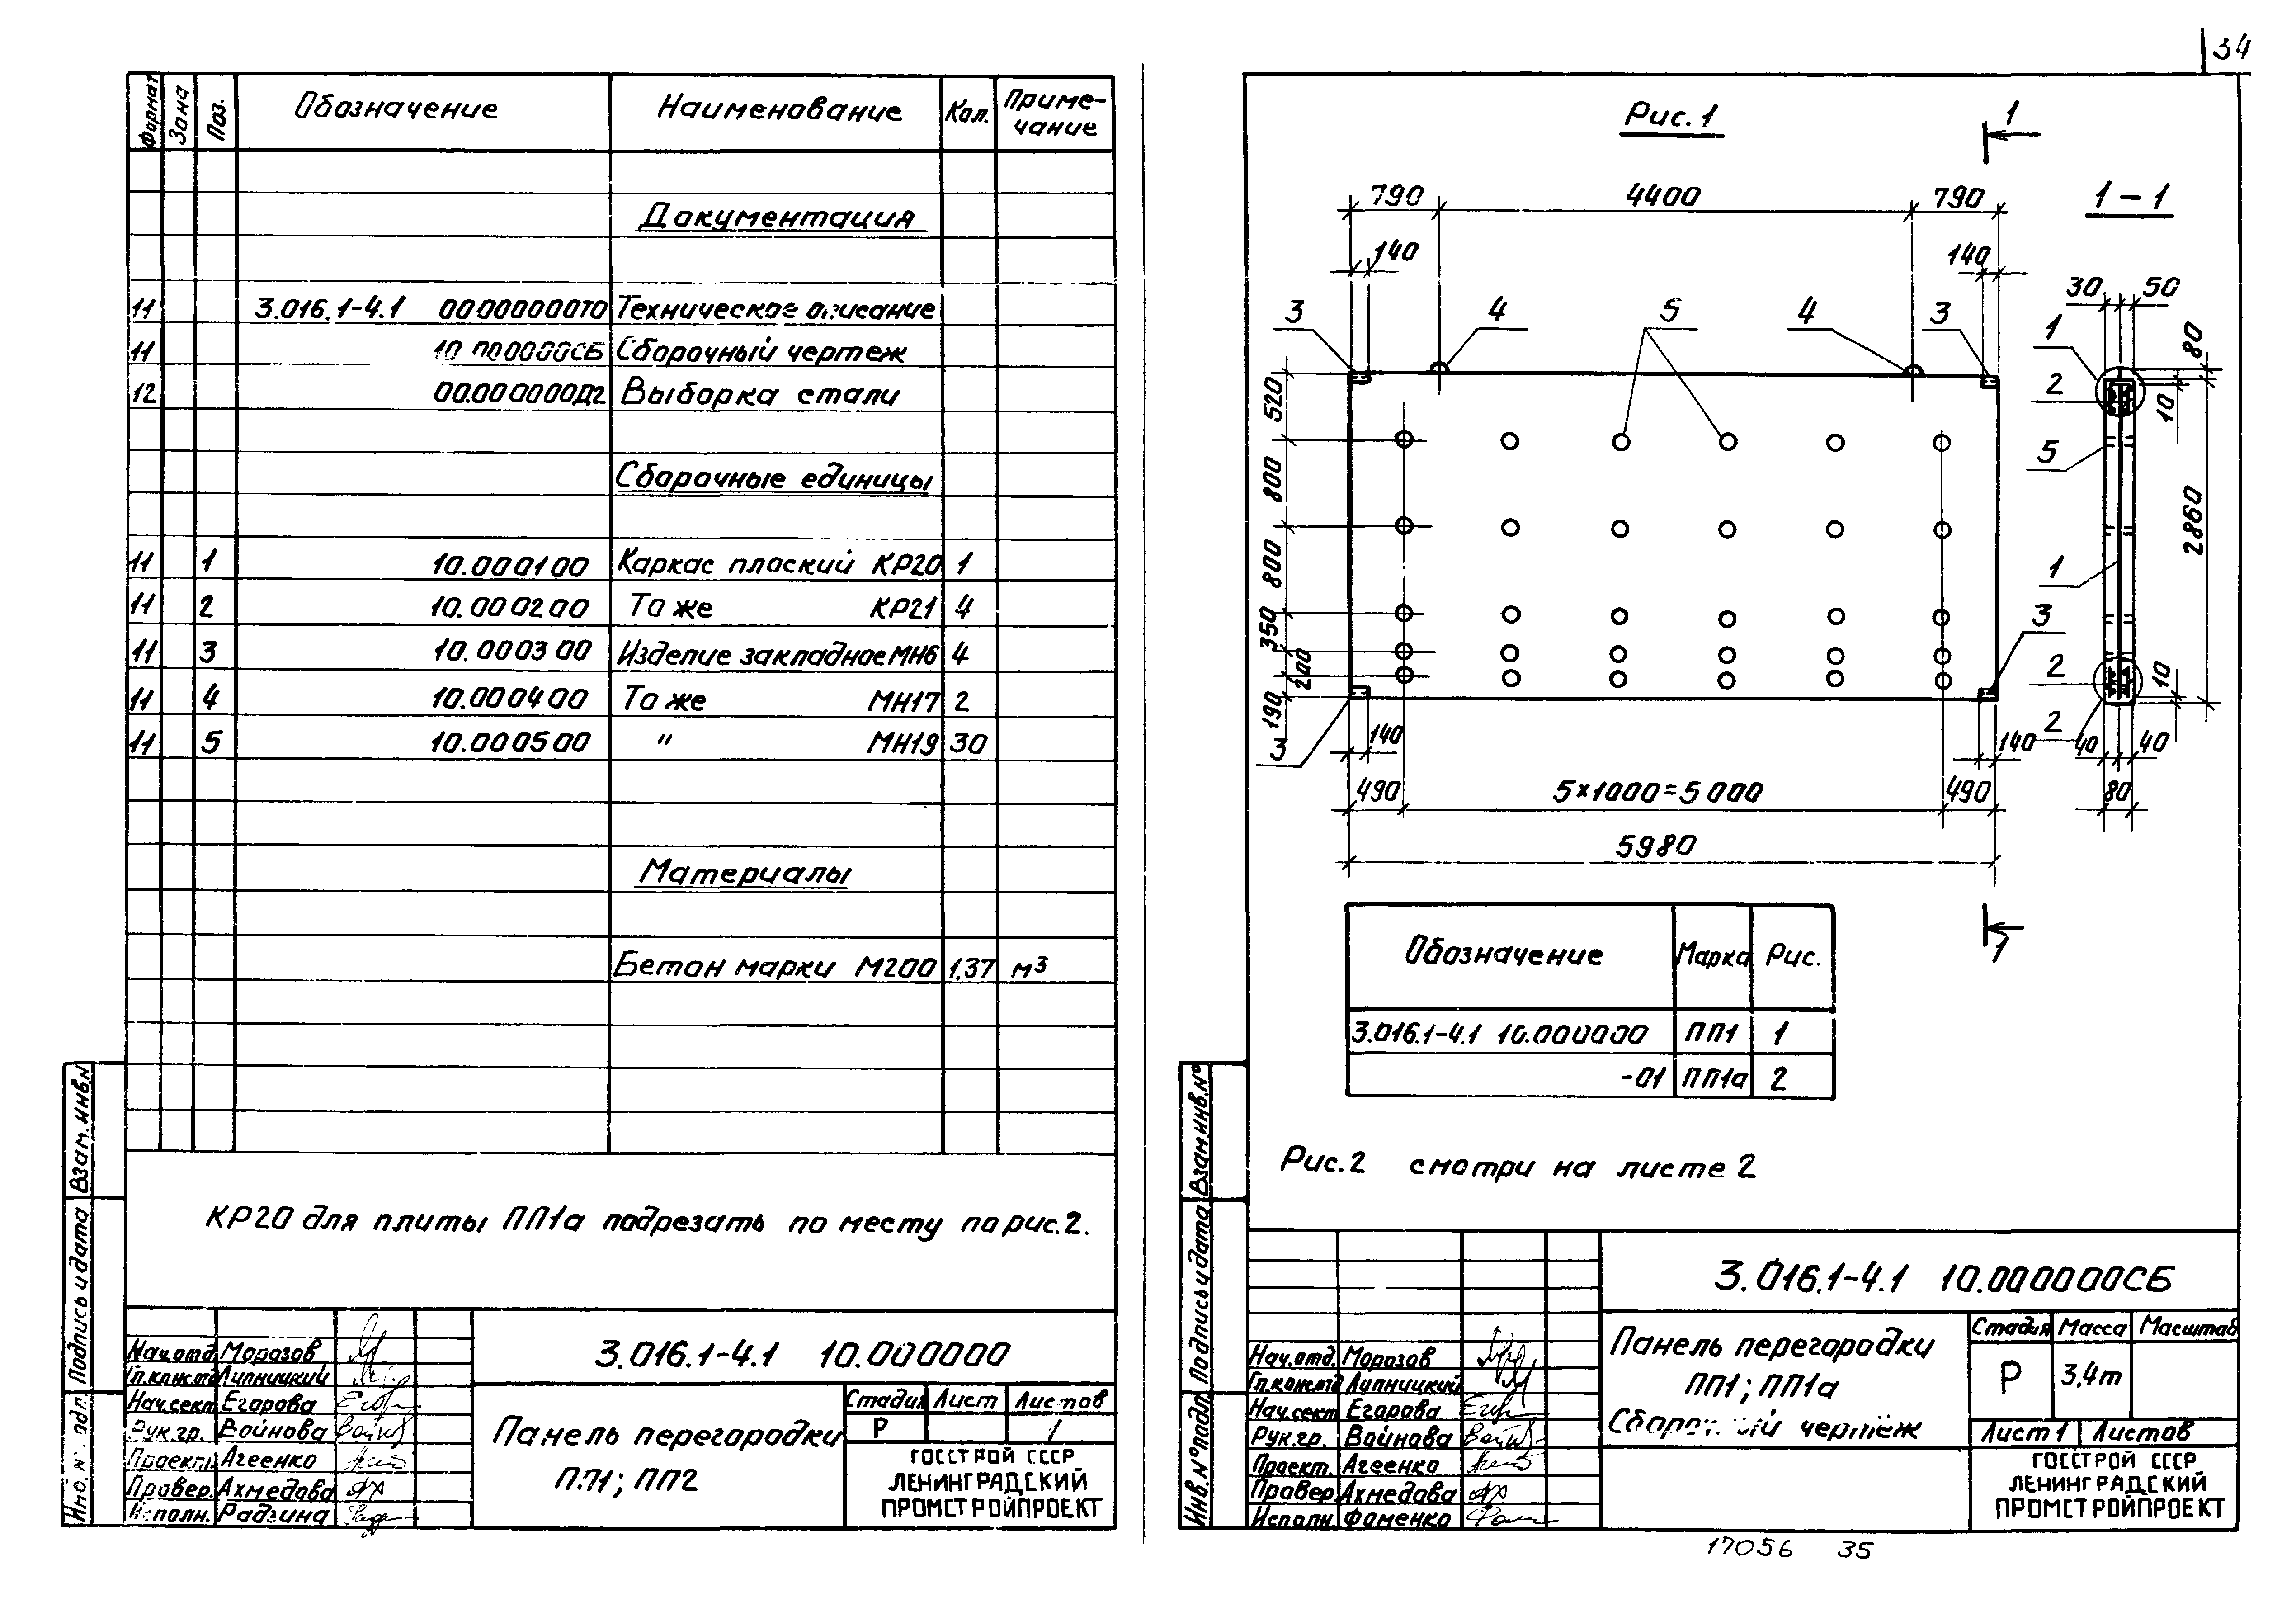 34
Формат Зона Поз. Обозначение Наименование Кол. Приме-
чание
Документация
11 3.016.1-4.1 00.000000ТО Техническое описание
11 10.000000СБ Сборочный чертеж
12 00.000000Д2 Выборка стали
Сборочные единицы
11 1 10.000100 Каркас плоский КР20 1
11 2 10.000200 То же КР21 4
11 3 10.000300 Изделие закладное МН6 4
11 4 10.000400 То же МН17 2
11 5 10.000500 " МН19 30
Материалы
Бетон марки М200 1,37 м³
КР20 для плиты ПП1а подрезать по месту по рис.2.
Взам. инв.N
Подпись и дата
Инв. N° подл.
Нач.отд. Морозов
Гл.конст.д Липницкий
Нач.сект. Егорова
Рук.гр. Войнова
Проект. Агеенко
Провер. Ахмедова
Исполн. Радзина
3.016.1-4.1 10.000000
Панель перегородки
ПП1; ПП2
Стадия Лист Листов
Р 1
ГОССТРОЙ СССР
ЛЕНИНГРАДСКИЙ
ПРОМСТРОЙПРОЕКТ
Рис.1
1
1-1
790 4400 790
140 140
30 50
3 4 5 4 3
1
80
2
10
520
800
800
350
200
190
5
2860
1
3
2
10
2
3
140 140
40 40
490 5×1000=5000 490
80
5980
1
Обозначение Марка Рис.
3.016.1-4.1 10.000000 ПП1 1
-01 ПП1а 2
Рис.2 смотри на листе 2
Взам.инв.N°
Подпись и дата
Инв.N°подл.
3.016.1-4.1 10.000000СБ
Нач.отд. Морозов
Гл.конст.д Липницкий
Нач.сект Егорова
Рук.гр. Войнова
Проект. Агеенко
Провер. Ахмедова
Исполн. Фоменко
Панель перегородки
ПП1; ПП1а
Сборочный чертёж
Стадия Масса Масштаб
Р 3,4т
Лист 1 Листов
ГОССТРОЙ СССР
ЛЕНИНГРАДСКИЙ
ПРОМСТРОЙПРОЕКТ
17056 35